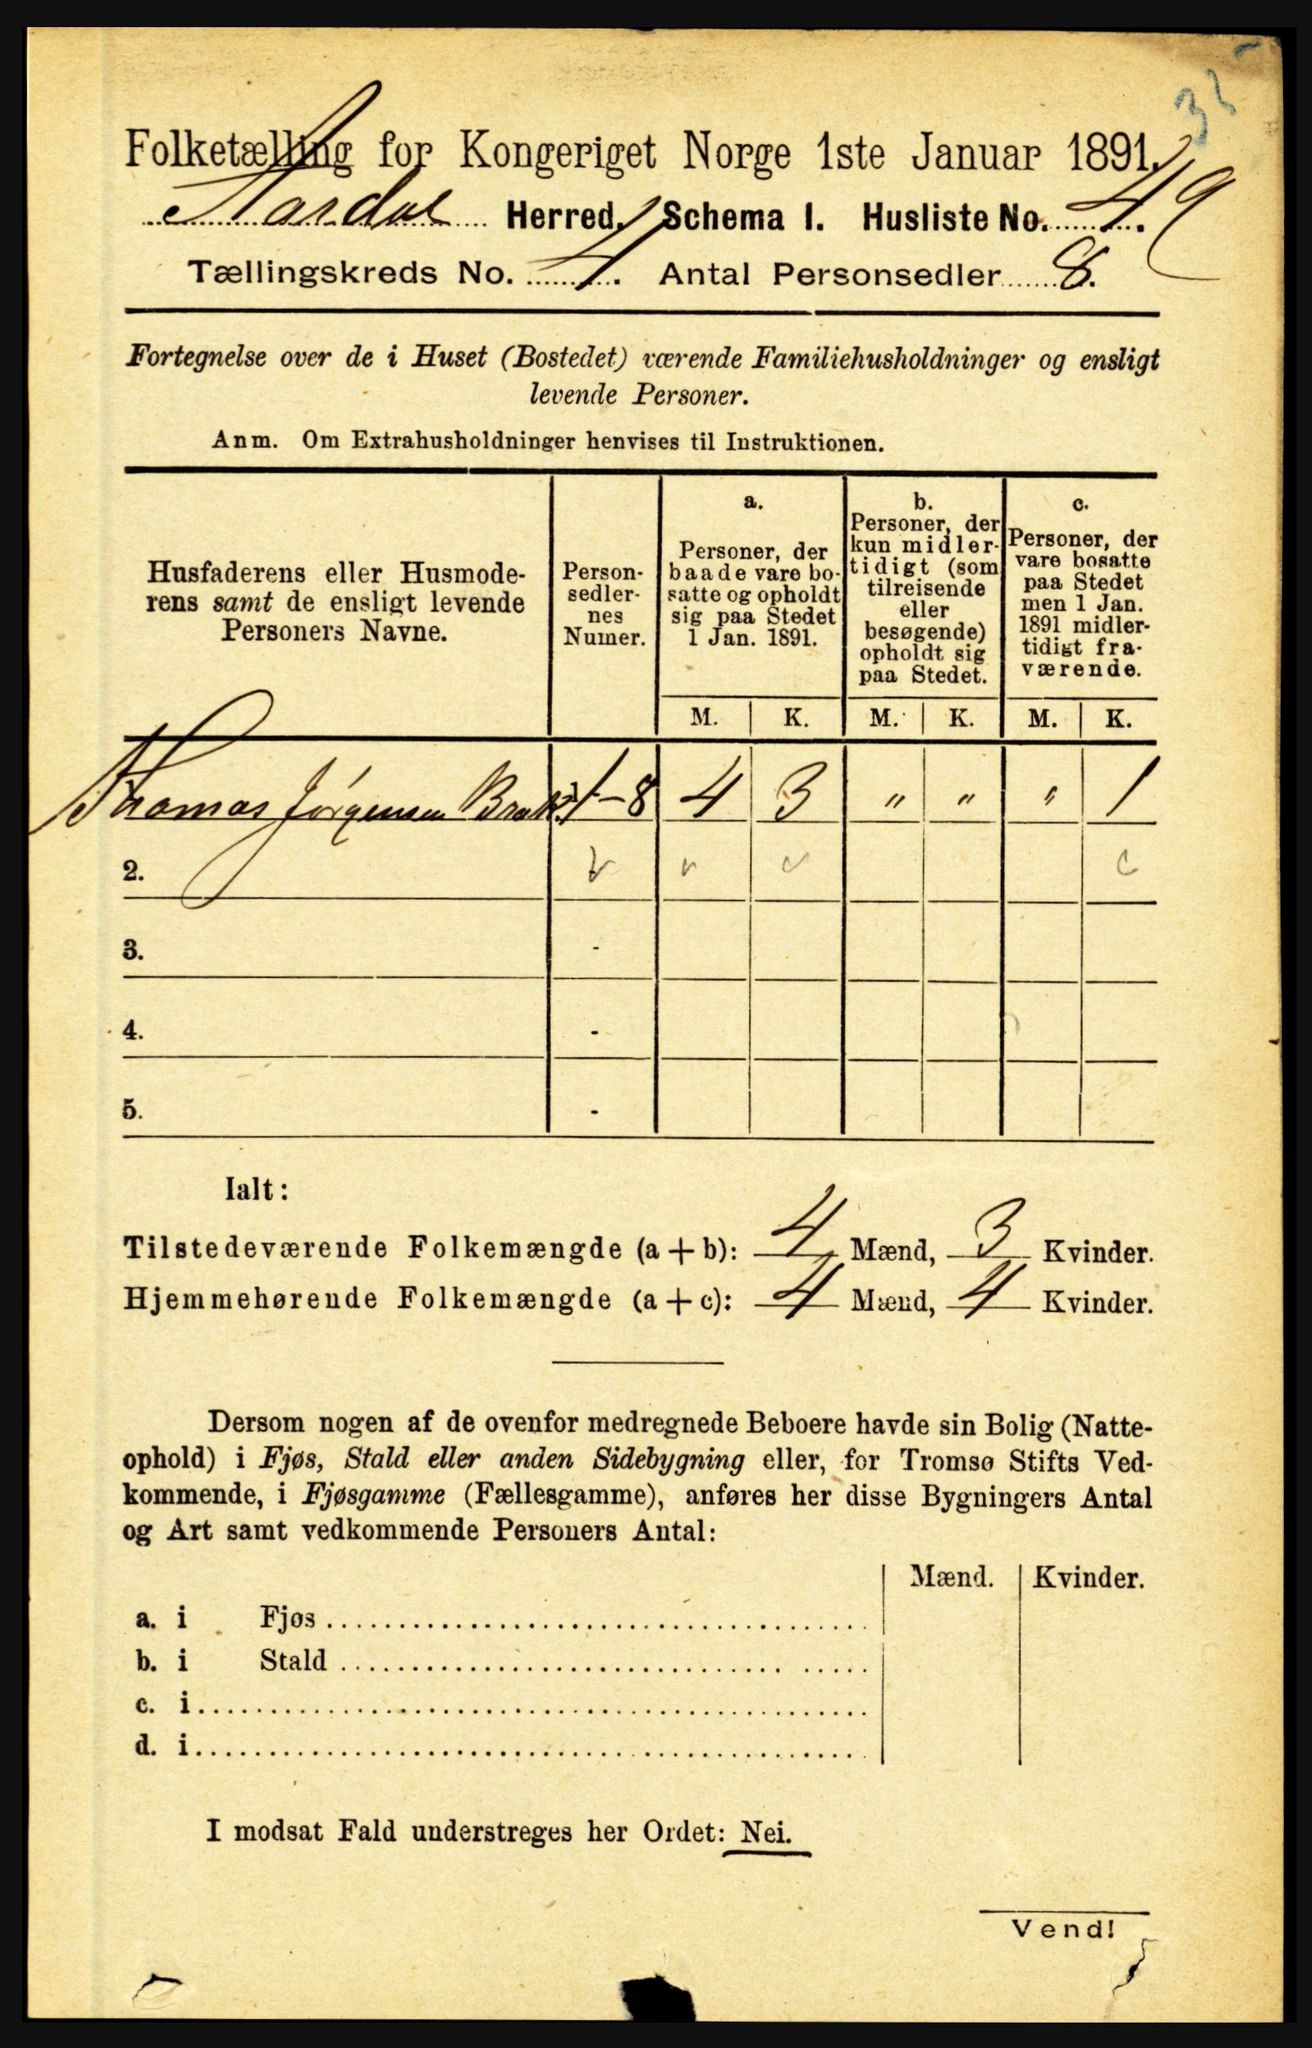 35
Folketælling for Kongeriget Norge 1ste Januar 1891.
Aardal Herred. Schema 1. Husliste No. 49.
Tællingskreds No. 4. Antal Personsedler 8.
Fortegnelse over de i Huset (Bostedet) værende Familiehusholdninger og ensligt
levende Personer.
Anm. Om Extrahusholdninger henvises til Instruktionen.
Husfaderens eller Husmode-
rens samt de ensligt levende
Personers Navne.
Person-
sedler-
nes
Numer.
a.
Personer, der
baade vare bo-
satte og opholdt
sig paa Stedet
1 Jan. 1891.
b.
Personer, der
kun midler-
tidigt (som
tilreisende
eller
besøgende)
opholdt sig
paa Stedet.
c.
Personer, der
vare bosatte
paa Stedet
men 1 Jan.
1891 midler-
tidigt fra-
værende.
M. K. M. K. M. K.
Thomas Jørgensen 1-8 4 3 " " " 1
2.
3. -
4. -
5. -
Ialt:
Tilstedeværende Folkemængde (a+b): 4 Mænd, 3 Kvinder.
Hjemmehørende Folkemængde (a+c): 4 Mænd, 4 Kvinder.
Dersom nogen af de ovenfor medregnede Beboere havde sin Bolig (Natte-
ophold) i Fjøs, Stald eller anden Sidebygning eller, for Tromsø Stifts Ved-
kommende, i Fjøsgamme (Fællesgamme), anføres her disse Bygningers Antal
og Art samt vedkommende Personers Antal:
Mænd. Kvinder.
a. i Fjøs
b. i Stald
c. i
d. i
I modsat Fald understreges her Ordet: Nei.
Vend!